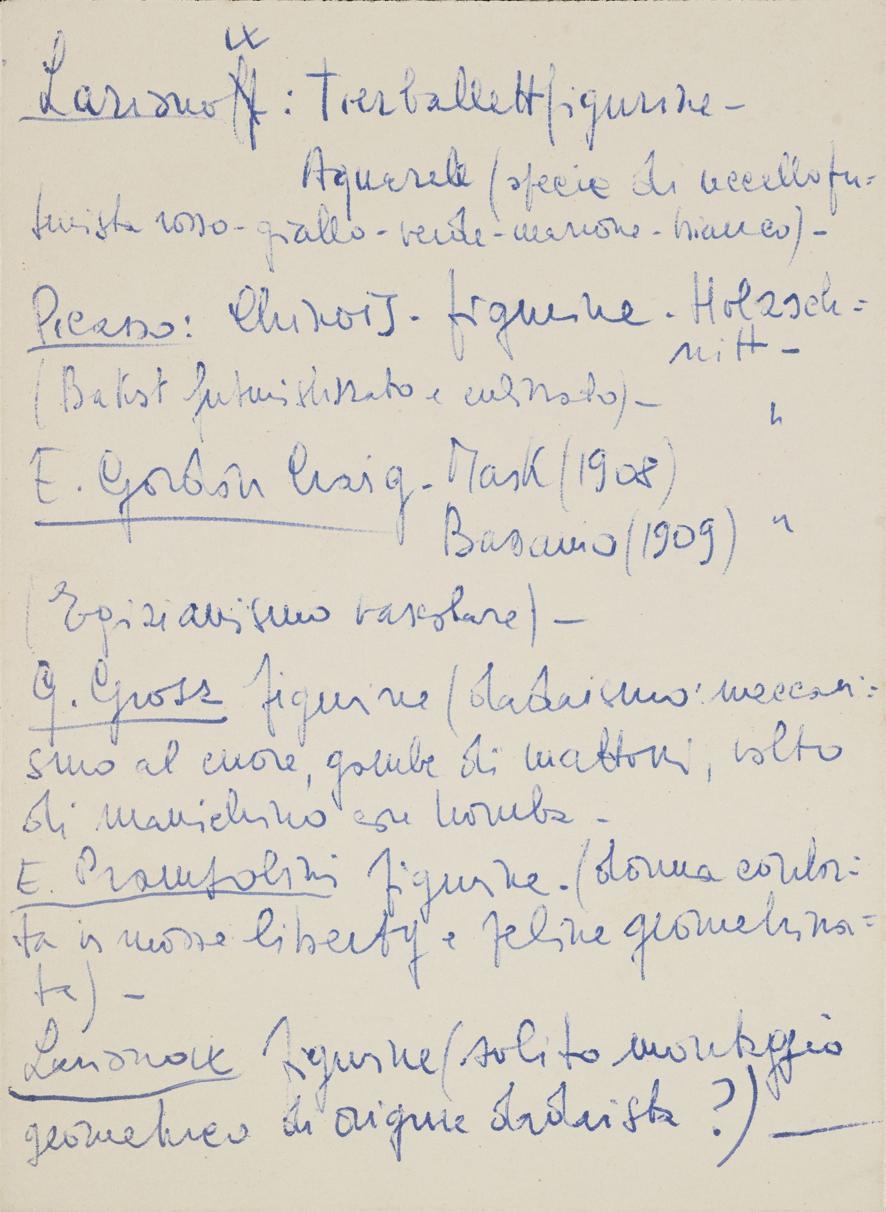 ux
Larionoff: Tierballettfigurine -
Aquarele (specie di uccello fu=
turista rosso - giallo - verde - marrone - bianco) -
Picasso: Chinois - figurine - Holzsch=
nitt -
(Bakst futuristizzato e cubizzato) - "
E. Gordon Craig - Mask (1908)
Bassanio (1909) "
(Egizianismo vascolare) -
G. Grosz figurine (dadaismo: meccani=
smo al cuore, gambe di mattoni, volto
di manichino con bomba -
E. Prampolini figurine. (donna contor=
ta in mosse liberty e feline geometrizza=
ta) -
Larionoux figurine (solito montaggio
geometrico di origine dadaista ?) -